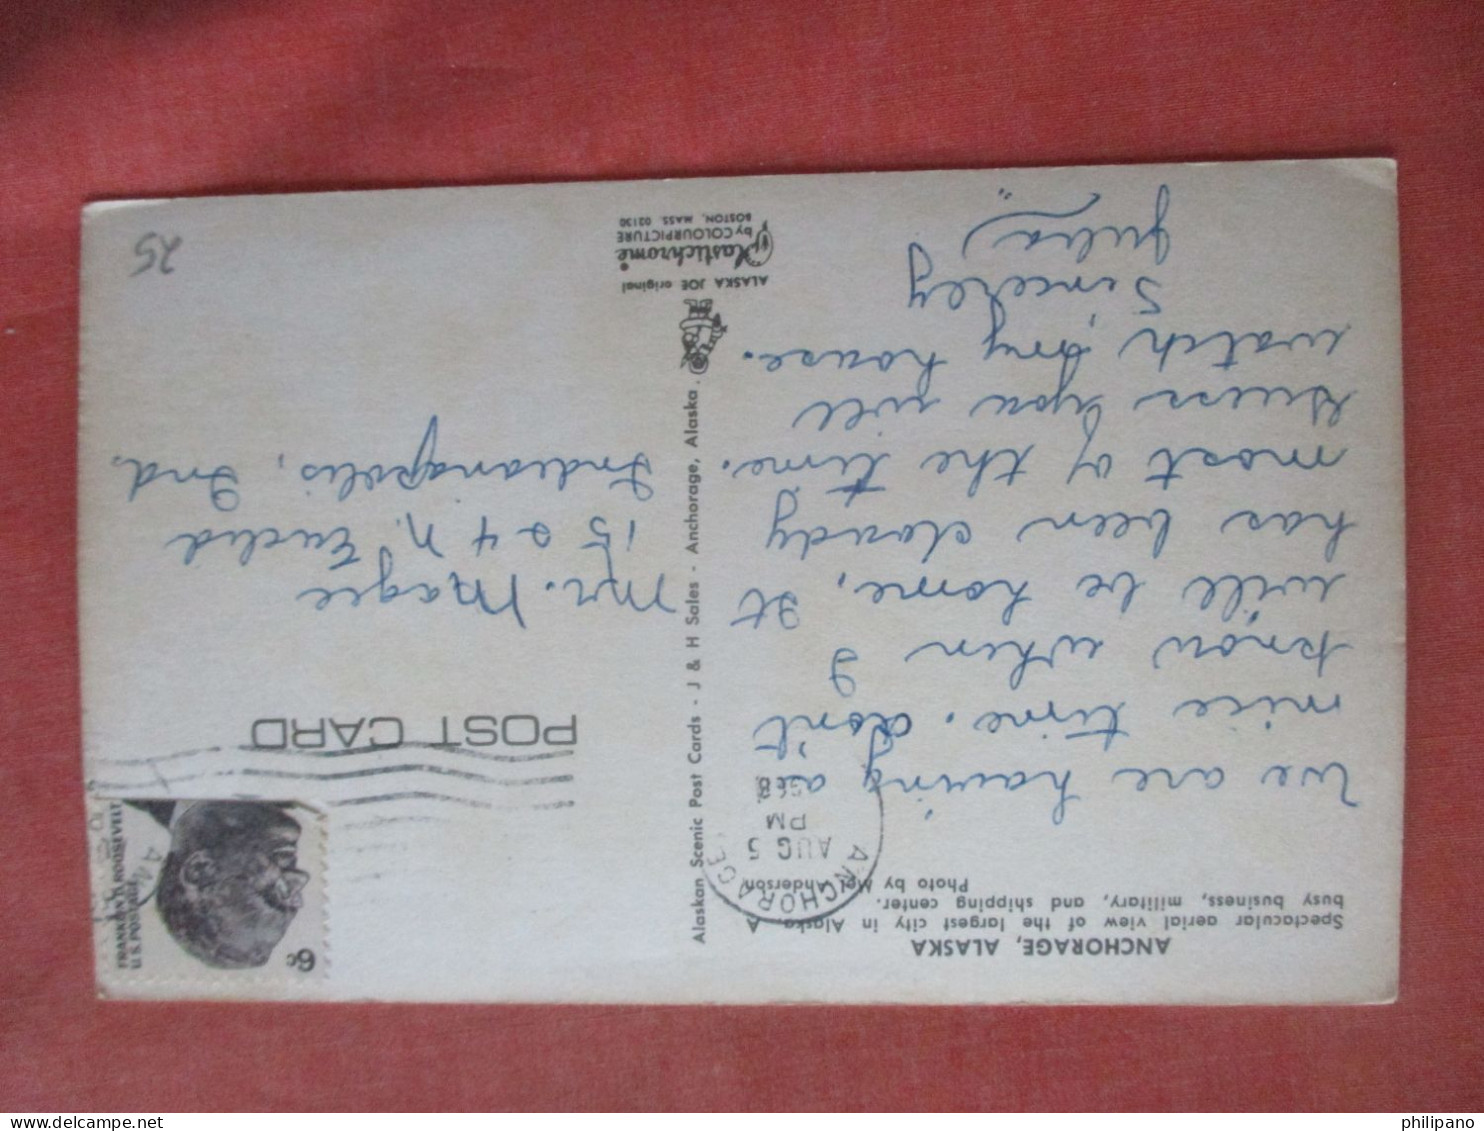 ANCHORAGE, ALASKA
Spectacular aerial view of the largest city in Alaska. A
busy business, military, and shipping center.
Photo by Mel Anderson
We are having a
nice time. don't
know when I
will be home, It
has been cloudy
most of the time.
Guess you will
watch my house.
Sincerley
Julia
Alaskan Scenic Post Cards - J & H Sales - Anchorage, Alaska.
ALASKA JOE original
Plastichrome
by COLOURPICTURE
BOSTON, MASS. 02130
ANCHORAGE
AUG 5
PM
1968
6c
U.S. POSTAGE
FRANKLIN D. ROOSEVELT
POST CARD
Mr. Magee
1524 N. Euclid
Indianapolis, Ind.
25
philipano